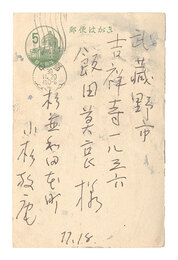 郵便はがき
5
武蔵野市
吉祥寺一八三六
飯田莫哀様
杉並和田本町
小杉放庵
11.18.